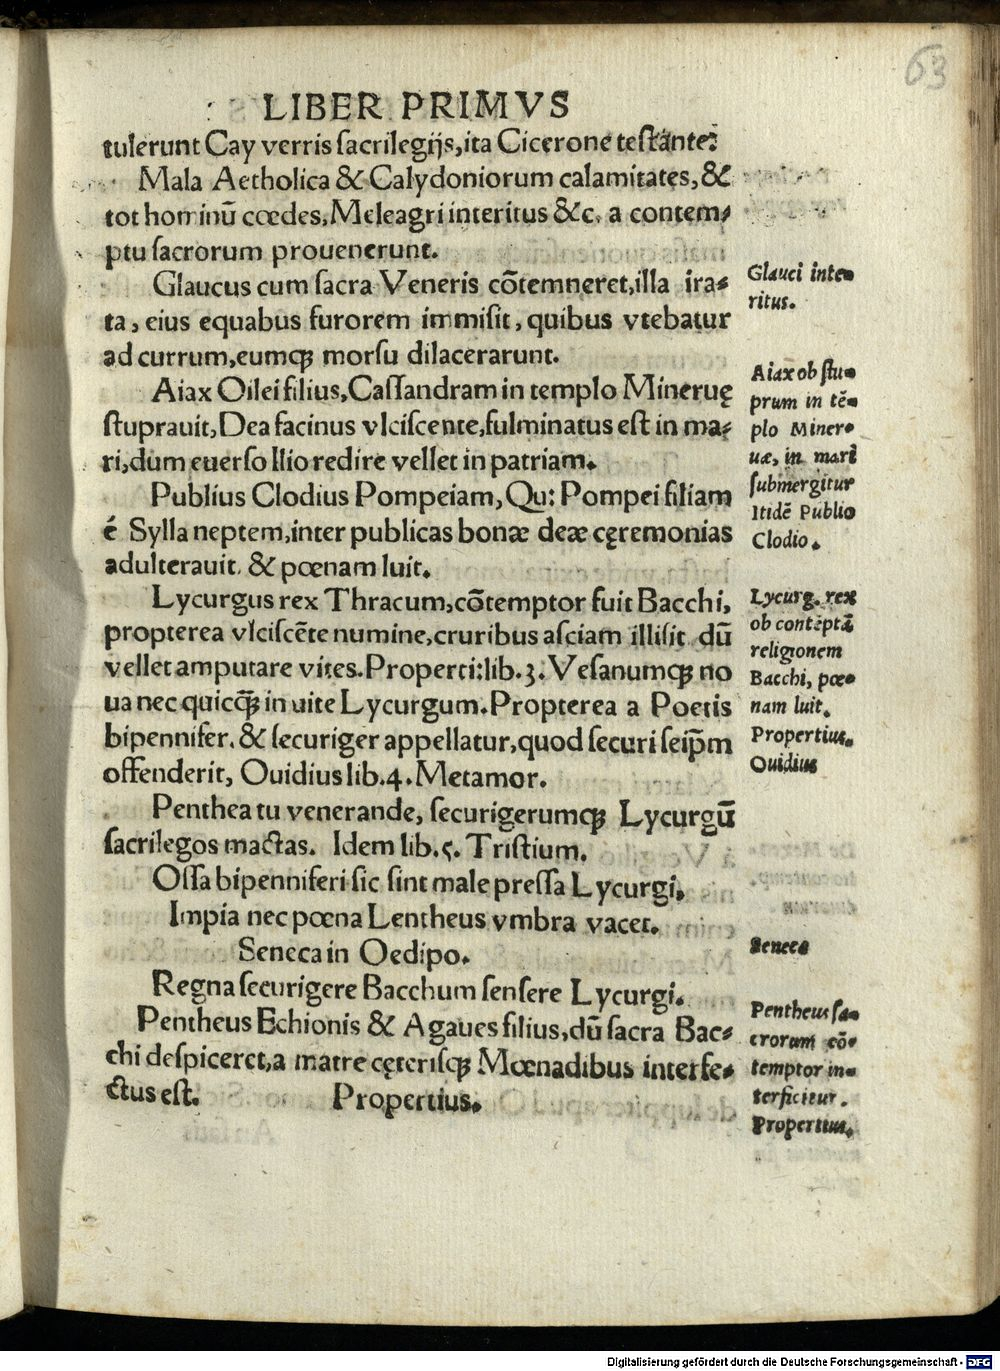 63
LIBER PRIMVS
tulerunt Cay verris sacrilegijs, ita Cicerone testante:
Mala Aetholica & Calydoniorum calamitates, &
tot hominū cœdes, Meleagri interitus &c. a contem⸗
ptu sacrorum prouenerunt.
Glaucus cum sacra Veneris cōtemneret, illa ira⸗
ta, eius equabus furorem immisit, quibus vtebatur
ad currum, eumqꝫ morsu dilacerarunt.
Aiax Oilei filius, Cassandram in templo Mineruę
stuprauit, Dea facinus vlciscente, fulminatus est in ma⸗
ri, dum euerso Ilio redire vellet in patriam.
Publius Clodius Pompeiam, Qu: Pompei filiam
é Sylla neptem, inter publicas bonæ deæ cęremonias
adulterauit. & pœnam luit.
Lycurgus rex Thracum, cōtemptor fuit Bacchi,
propterea vlciscēte numine, cruribus asciam illisit dū
vellet amputare vites. Properti: lib. 3. Vesanumqꝫ no
ua nec quicq̄ꝫ in uite Lycurgum. Propterea a Poetis
bipennifer. & securiger appellatur, quod securi seip̄m
offenderit, Ouidius lib. 4. Metamor.
Penthea tu venerande, securigerumqꝫ Lycurgū
sacrilegos mactas. Idem lib. 5. Tristium.
Ossa bipenniferi sic sint male pressa Lycurgi.
Impia nec pœna Lentheus vmbra vacet.
Seneca in Oedipo.
Regna securigere Bacchum sensere Lycurgi.
Pentheus Echionis & Agaues filius, dū sacra Bac⸗
chi despiceret, a matre cęterisqꝫ Mœnadibus interfe⸗
ctus est. Propertius.
Glauci inte⸗
ritus.
Aiax ob stu⸗
prum in tē⸗
plo Miner⸗
uæ, in mari
submergitur
Itidē Publio
Clodio.
Lycurg. rex
ob contēptā
religionem
Bacchi, pœ⸗
nam luit.
Propertius.
Ouidius
Seneca
Pentheus sa⸗
crorum cō⸗
temptor in⸗
terficitur.
Propertius.
Digitalisierung gefördert durch die Deutsche Forschungsgemeinschaft - DFG